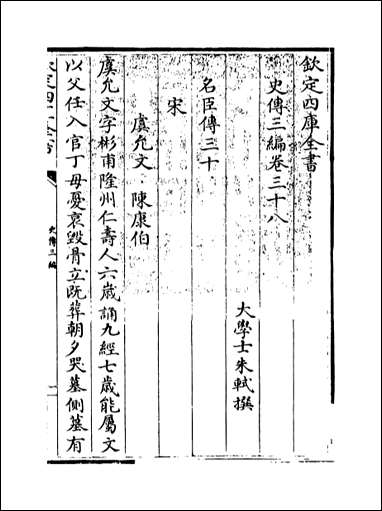 欽定四庫全書
史傳三編卷三十八
大學士朱軾撰
名臣傳三十
宋
虞允文 陳康伯
虞允文字彬甫隆州仁壽人六歲誦九經七歲能屬文
以父任入官丁母憂哀毀骨立既葬朝夕哭墓側墓有
欽定四庫全書
史傳三編